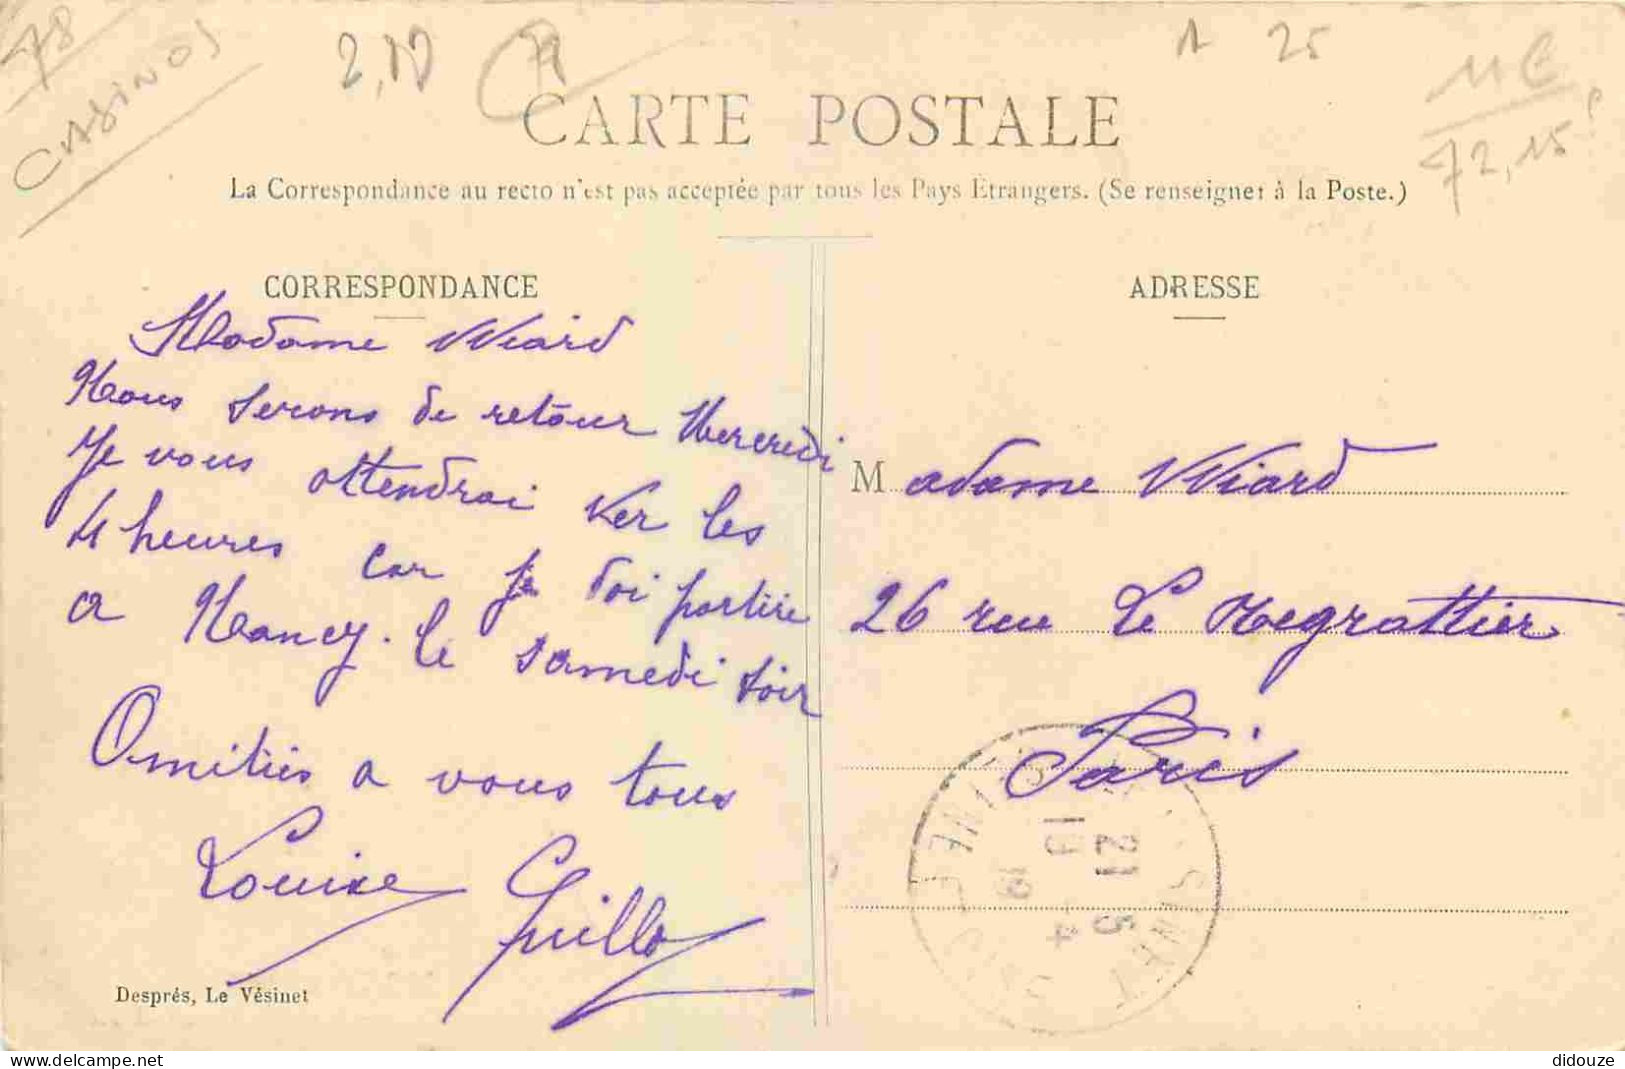 78
CASINOS
2,10
78
1 25
CARTE POSTALE
La Correspondance au recto n'est pas acceptée par tous les Pays Étrangers. (Se renseigner à la Poste.)
CORRESPONDANCE
Madame Wiard
Nous serons de retour Mercredi
Je vous attendrai ver les
4 heures car je doi partire
a Nancy. le samedi soir
Amitiés a vous tous
Louise Guillo
Desprès, Le Vésinet
ADRESSE
Madame Wiard
26 rue Le Negrattier
Paris
21 5
19 4
19
didouze
www.delcampe.net